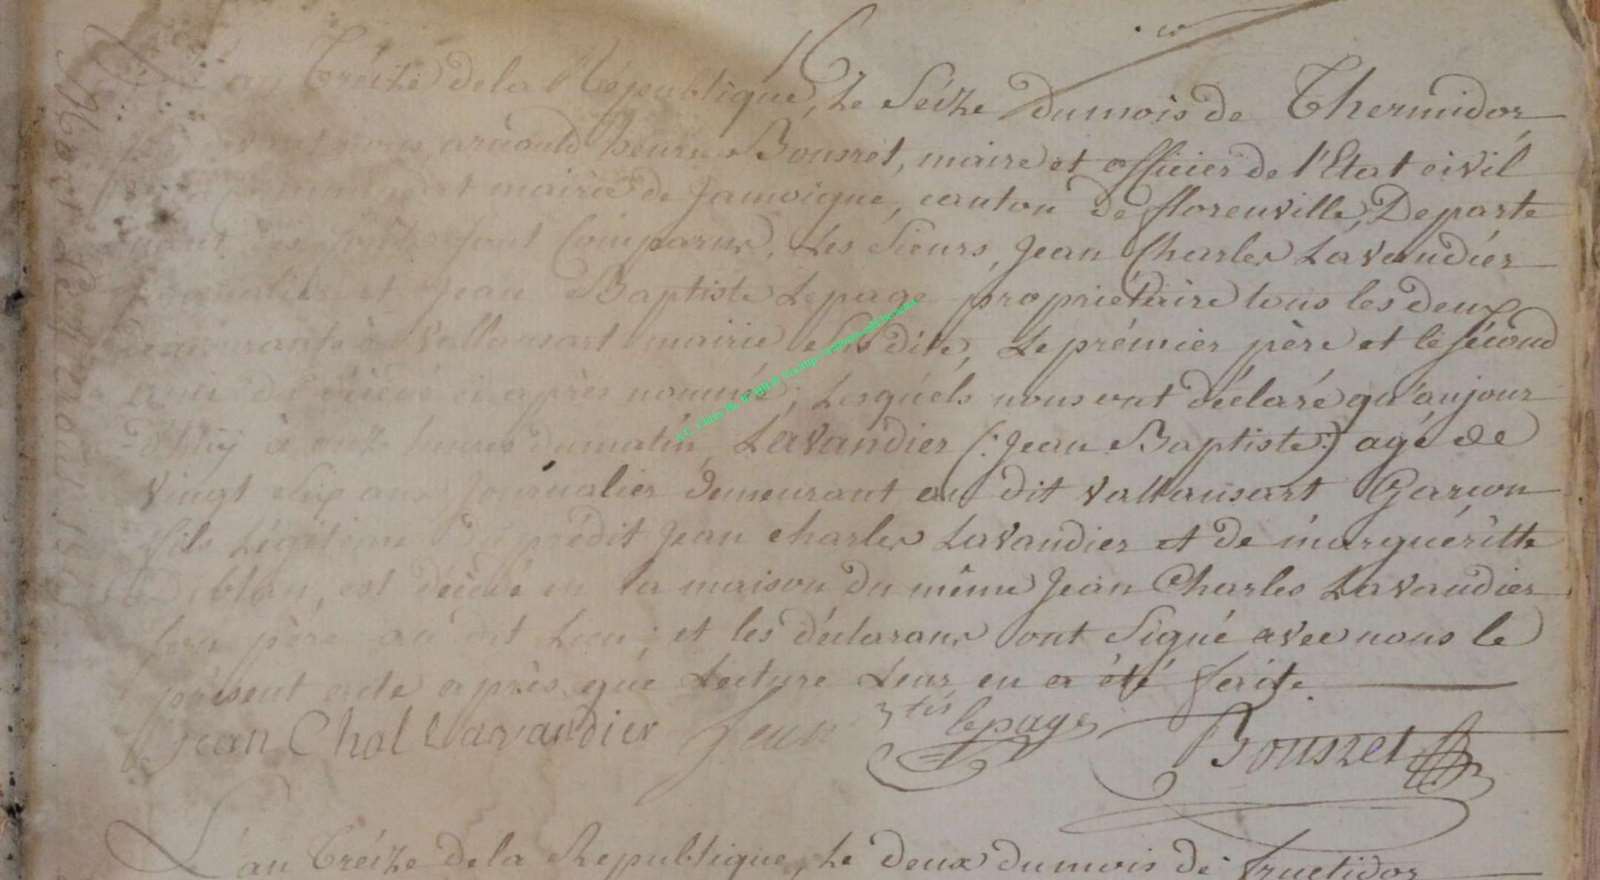 16
an Treize de la République, Le Seize du mois de Thermidor
arnould henri Bousret, maire et officier de l'Etat civil
mairie de Jamoigne, canton de florenville, Departe
ment des sont Comparus, Les Sieurs, Jean Charles Lavandier
Journalier et Jean Baptiste Lepage propriétaire tous les deux
demeurants à Vallansart mairie susdite, Le prémier père et le sécond
ami du décédé ci après nommé; Lesquels nous ont déclaré qu'aujour
d'huy à heures du matin, Lavandier (: Jean Baptiste :) agé de
vingt six ans, Journalier demeurant au dit vallansart Garcon
fils Légitime du prédit Jean charles Lavandier et de marguéritte
est décédé en la maison du même Jean Charles Lavandier
son père au dit Lieu; et les déclarans ont Signé avec nous le
présent acte après que Lecture Leur en a été faite
Jean Chal Lavandier Jean Btis lepage Bousret
L'an Treize de la Republique, Le deux du mois de fructidor